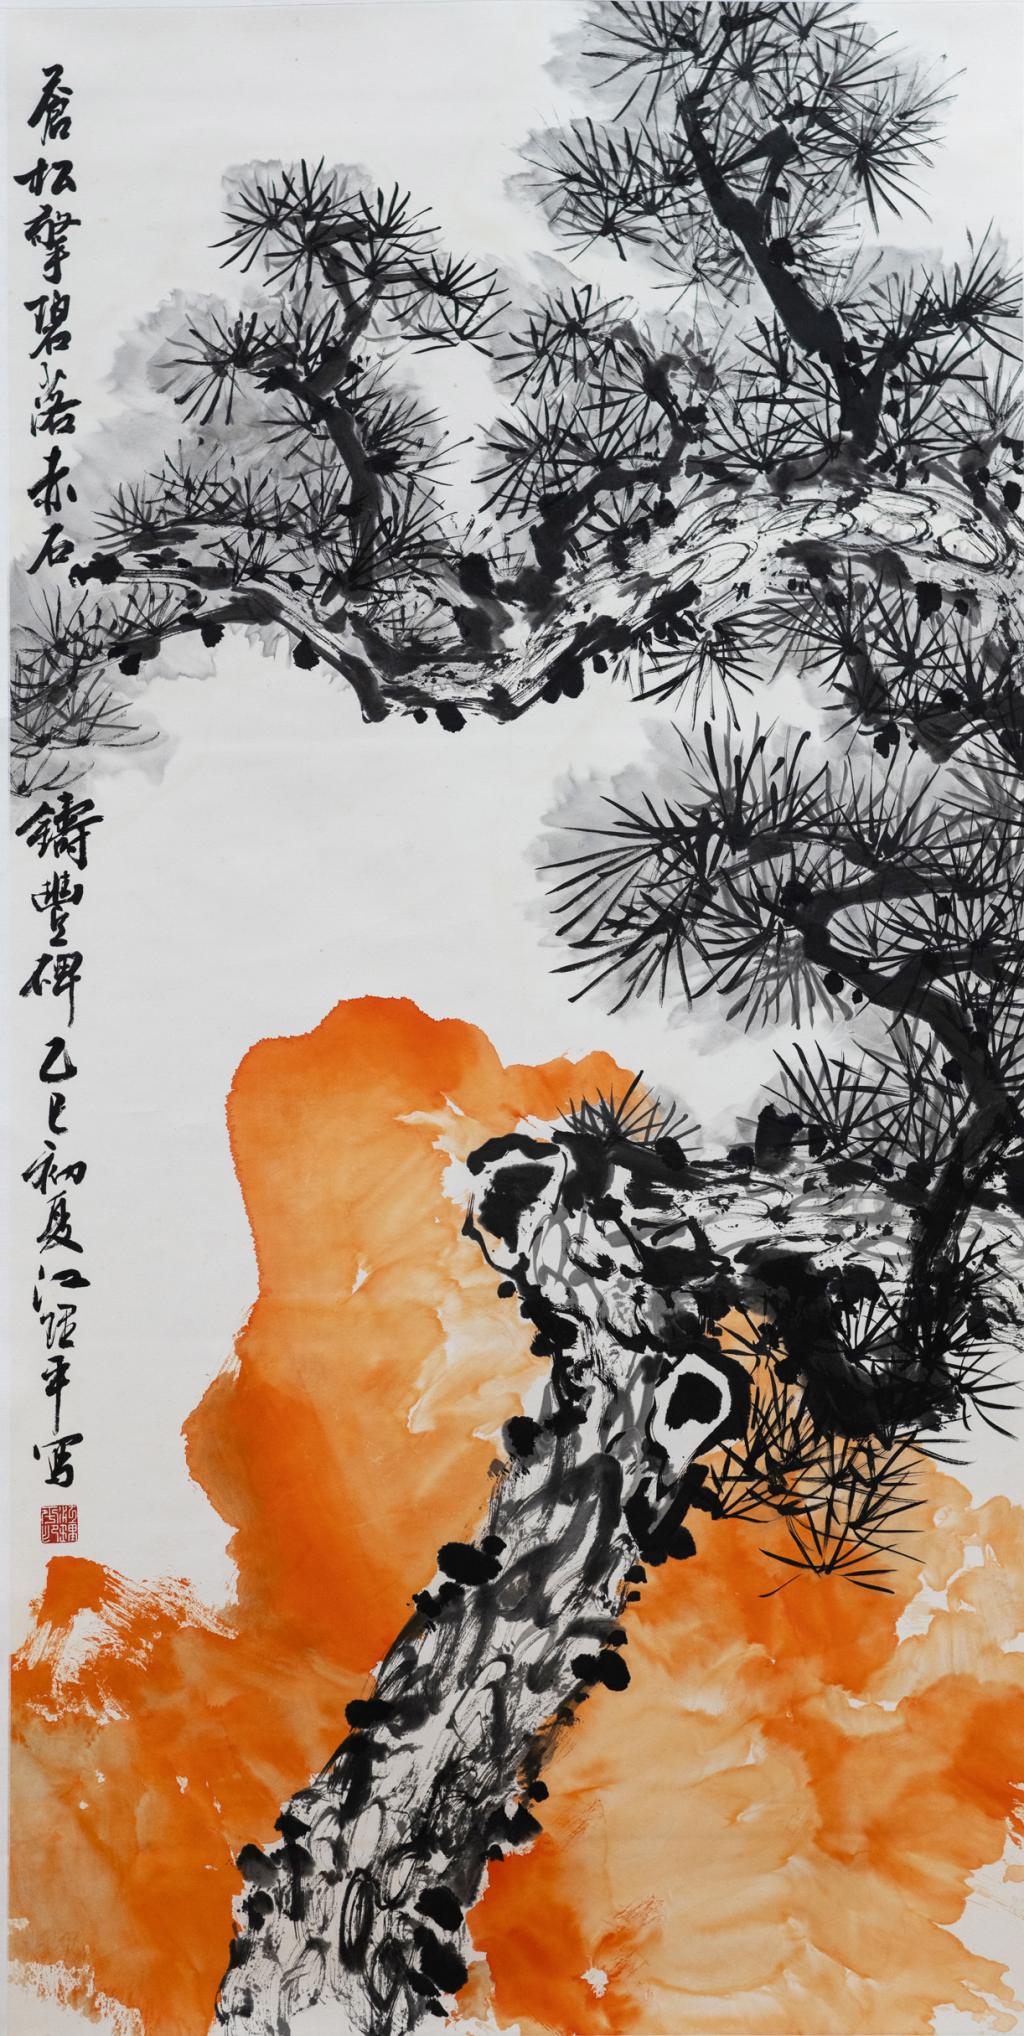 蒼松擎碧落赤石
鑄豐碑乙巳初夏江經平寫